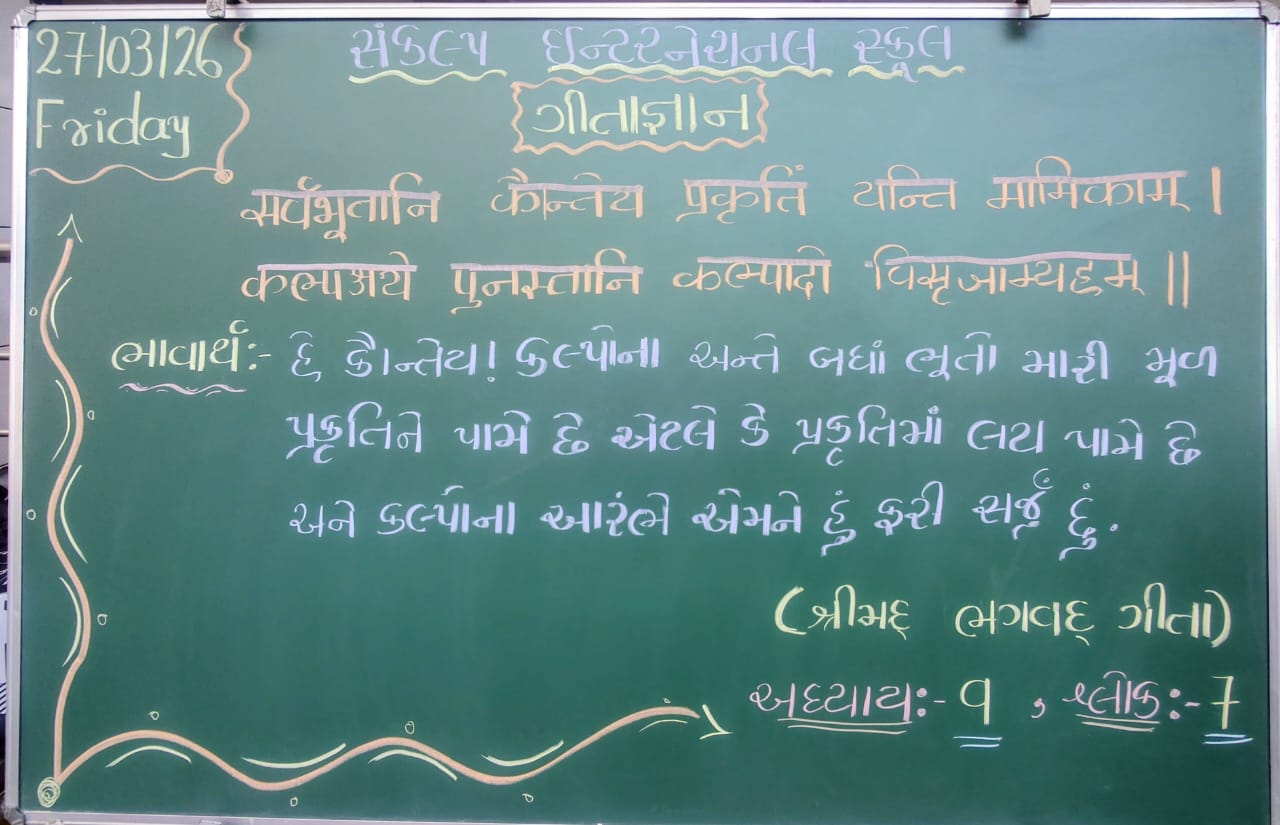 27/03/26
Friday
સંકલ્પ ઇન્ટરનેશનલ સ્કૂલ
ગીતાજ્ઞાન
सर्वभूतानि कौन्तेय प्रकृतिं यन्ति मामिकाम् ।
पुनस्तानि कल्पादो विसृजाम्यहम् ॥
ભાવાર્થ:- હે કૌન્તેય! કલ્પોના અન્તે બધાં ભૂતો મારી મૂળ
પ્રકૃતિને પામે છે એટલે કે પ્રકૃતિમાં લય પામે છે
અને કલ્પોના આરંભે એમને હું ફરી સર્જું છું.
(શ્રીમદ્ ભગવદ્ ગીતા)
અધ્યાય:- 9 , શ્લોક:- 7